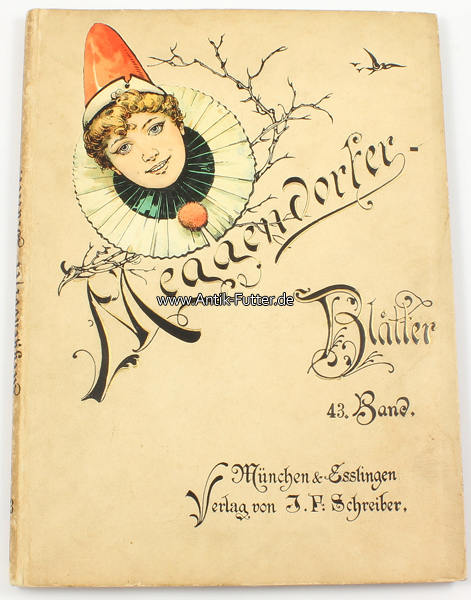 Meggendorfer-
www.Antik-Futter.de
Blätter
43. Band.
München & Esslingen
Verlag von J. F. Schreiber.